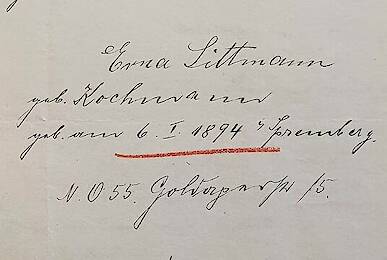 Erna Littmann
geb. Kochmann
geb. am 6. I. 1894 Spremberg.
N.O 55. Goldaperstr 15.